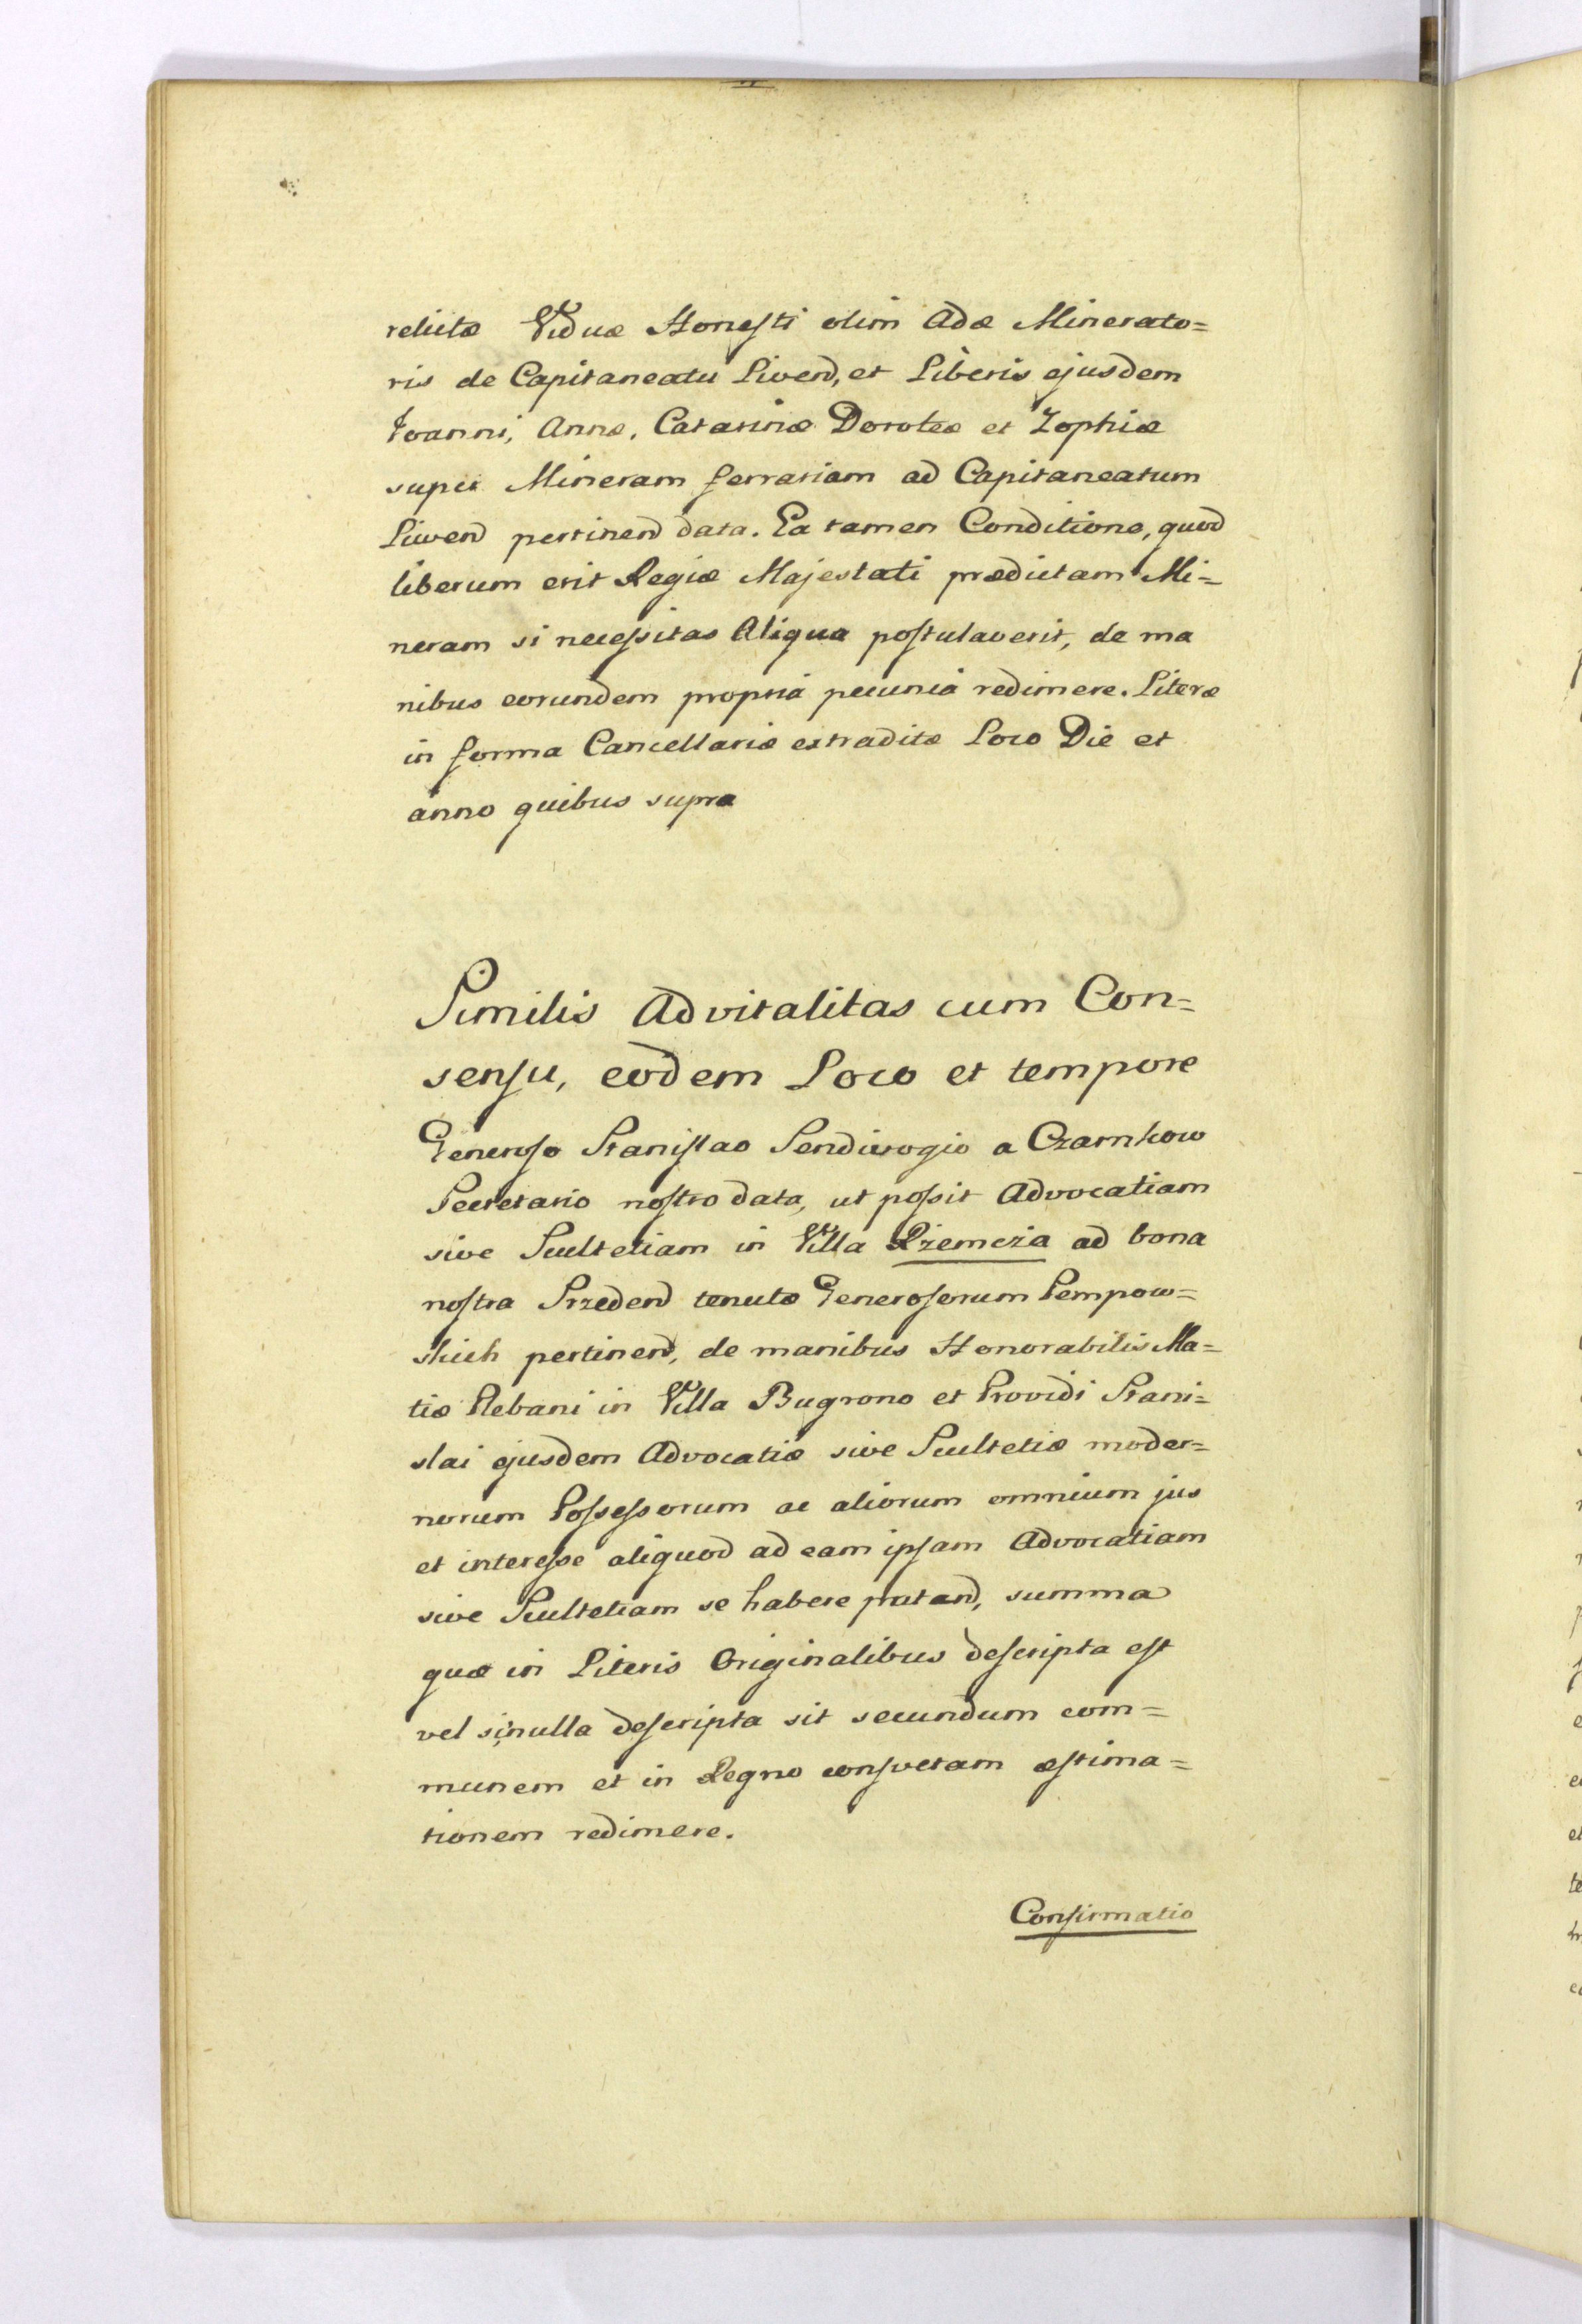 relictæ Viduæ Honesti olim Adæ Minerato=
ris de Capitaneatu Livend, et Liberis ejusdem
Joanni, Annæ, Catarinæ Doroteæ et Zophiæ
super Mineram ferrariam ad Capitaneatum
Livend pertinend data. Ea tamen Conditione, quod
liberum erit Regiæ Majestati prædictam Mi=
neram si necessitas Aliqua postulaverit, de ma
nibus eorundem propriá pecuniá redimere. Literæ
in forma Cancellariæ extraditæ Loco Die et
anno quibus supra
Similis Advitalitas cum Con=
sensu, eodem Loco et tempore
Generoso Stanislao Sendivogio a Czarnkow
Secretario nostro data, ut possit Advocatiam
sive Scultetiam in Villa Rzemcza ad bona
nostra Srzedend tenutæ Generosorum Pempow=
skich pertinend, de manibus Honorabilis Ma=
tiæ Plebani in Villa Bugrono et Providi Stani=
slai ejusdem Advocatiæ sive Scultetiæ moder=
norum Possessorum ac aliorum omnium jus
et interesse aliquod ad eam ipsam Advocatiam
sive Scultetiam se habere putand, summa
quæ in Literis Originalibus descripta est
vel si nulla descripta sit secundum com=
munem et in Regno consvetam æstima=
tionem redimere.
Confirmatio